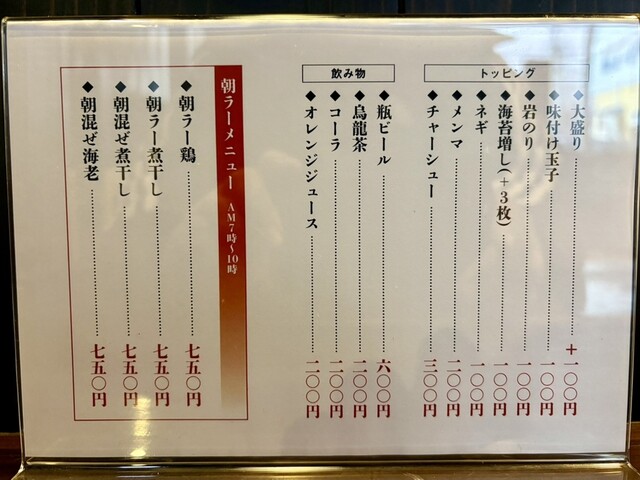 トッピング
◆大盛り……+一〇〇円
◆味付け玉子……一〇〇円
◆岩のり……一〇〇円
◆海苔増し(+3枚)……一〇〇円
◆ネギ……一〇〇円
◆メンマ……二〇〇円
◆チャーシュー……三〇〇円
飲み物
◆瓶ビール……六〇〇円
◆烏龍茶……二〇〇円
◆コーラ……二〇〇円
◆オレンジジュース……二〇〇円
朝ラーメニュー AM7時～10時
◆朝ラー鶏……七五〇円
◆朝ラー煮干し……七五〇円
◆朝混ぜ煮干し……七五〇円
◆朝混ぜ海老……七五〇円